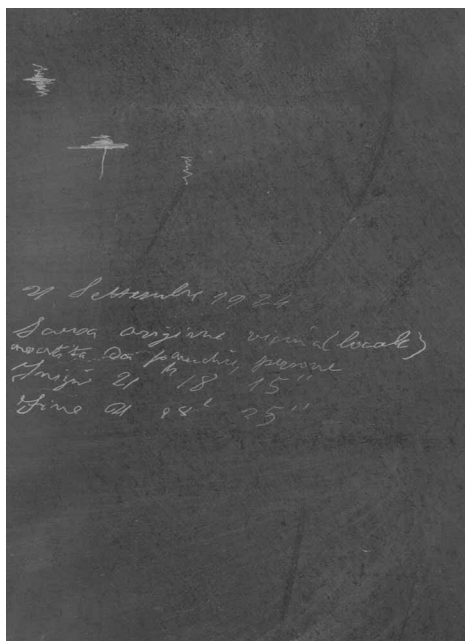 21 Settembre 1924
Scossa origine vicina (locale)
avvertita da parecchie persone
Inizio 21 h 18 15"
Fine 21 18 25"